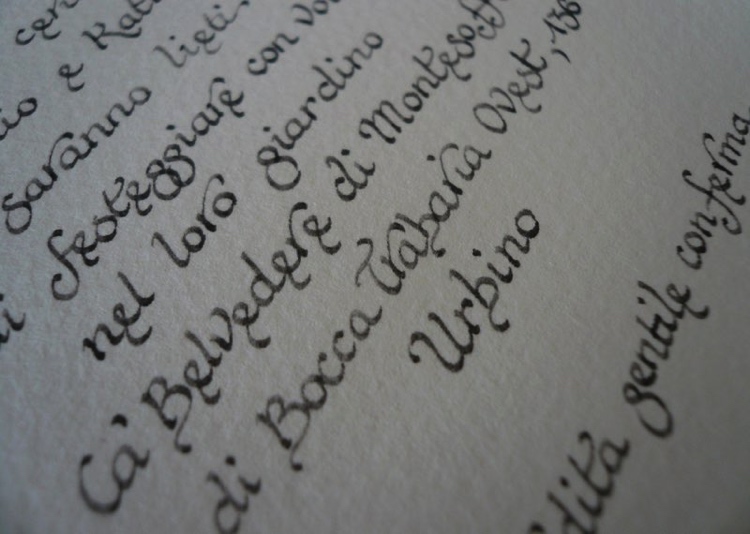 e Kat
saranno lieti
di festeggiare con voi
nel loro giardino
Ca' Belvedere di Monteso
di Bocca Trabaria Ovest, 136
Urbino
gentile conferma